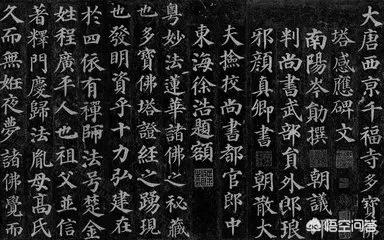 大唐西京千福寺多寶
塔感應碑文
南陽岑勛撰 朝議
判尚書武部員外郎琅
邪顏真卿書 朝散大
夫撿挍尚書都官郎中
東海徐浩題額
粵妙法蓮華諸佛之秘藏
也多寶佛塔證經之踴現
也發明資乎十力弘建在
於四依有禪師法号楚金
姓程廣平人也祖父並信
著釋門慶歸法胤母高氏
久而無姙夜夢諸佛覺而
悟空问答